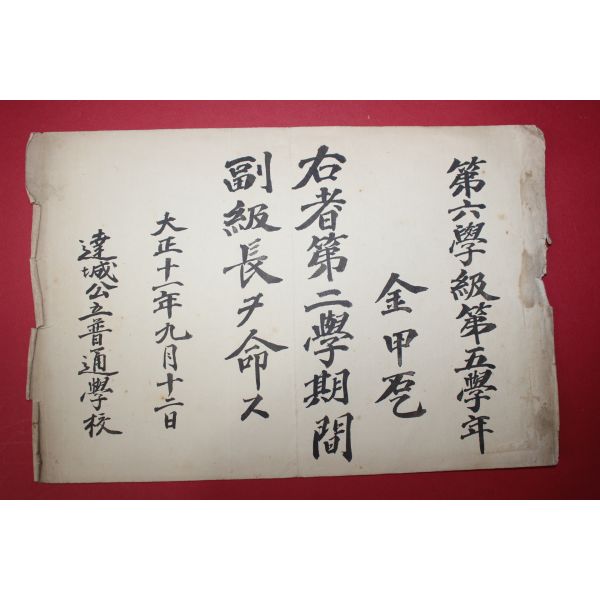 第六學級第五學年
金甲乭
右者第二學期間
副級長ヲ命ス
大正十一年九月十二日
達城公立普通學校